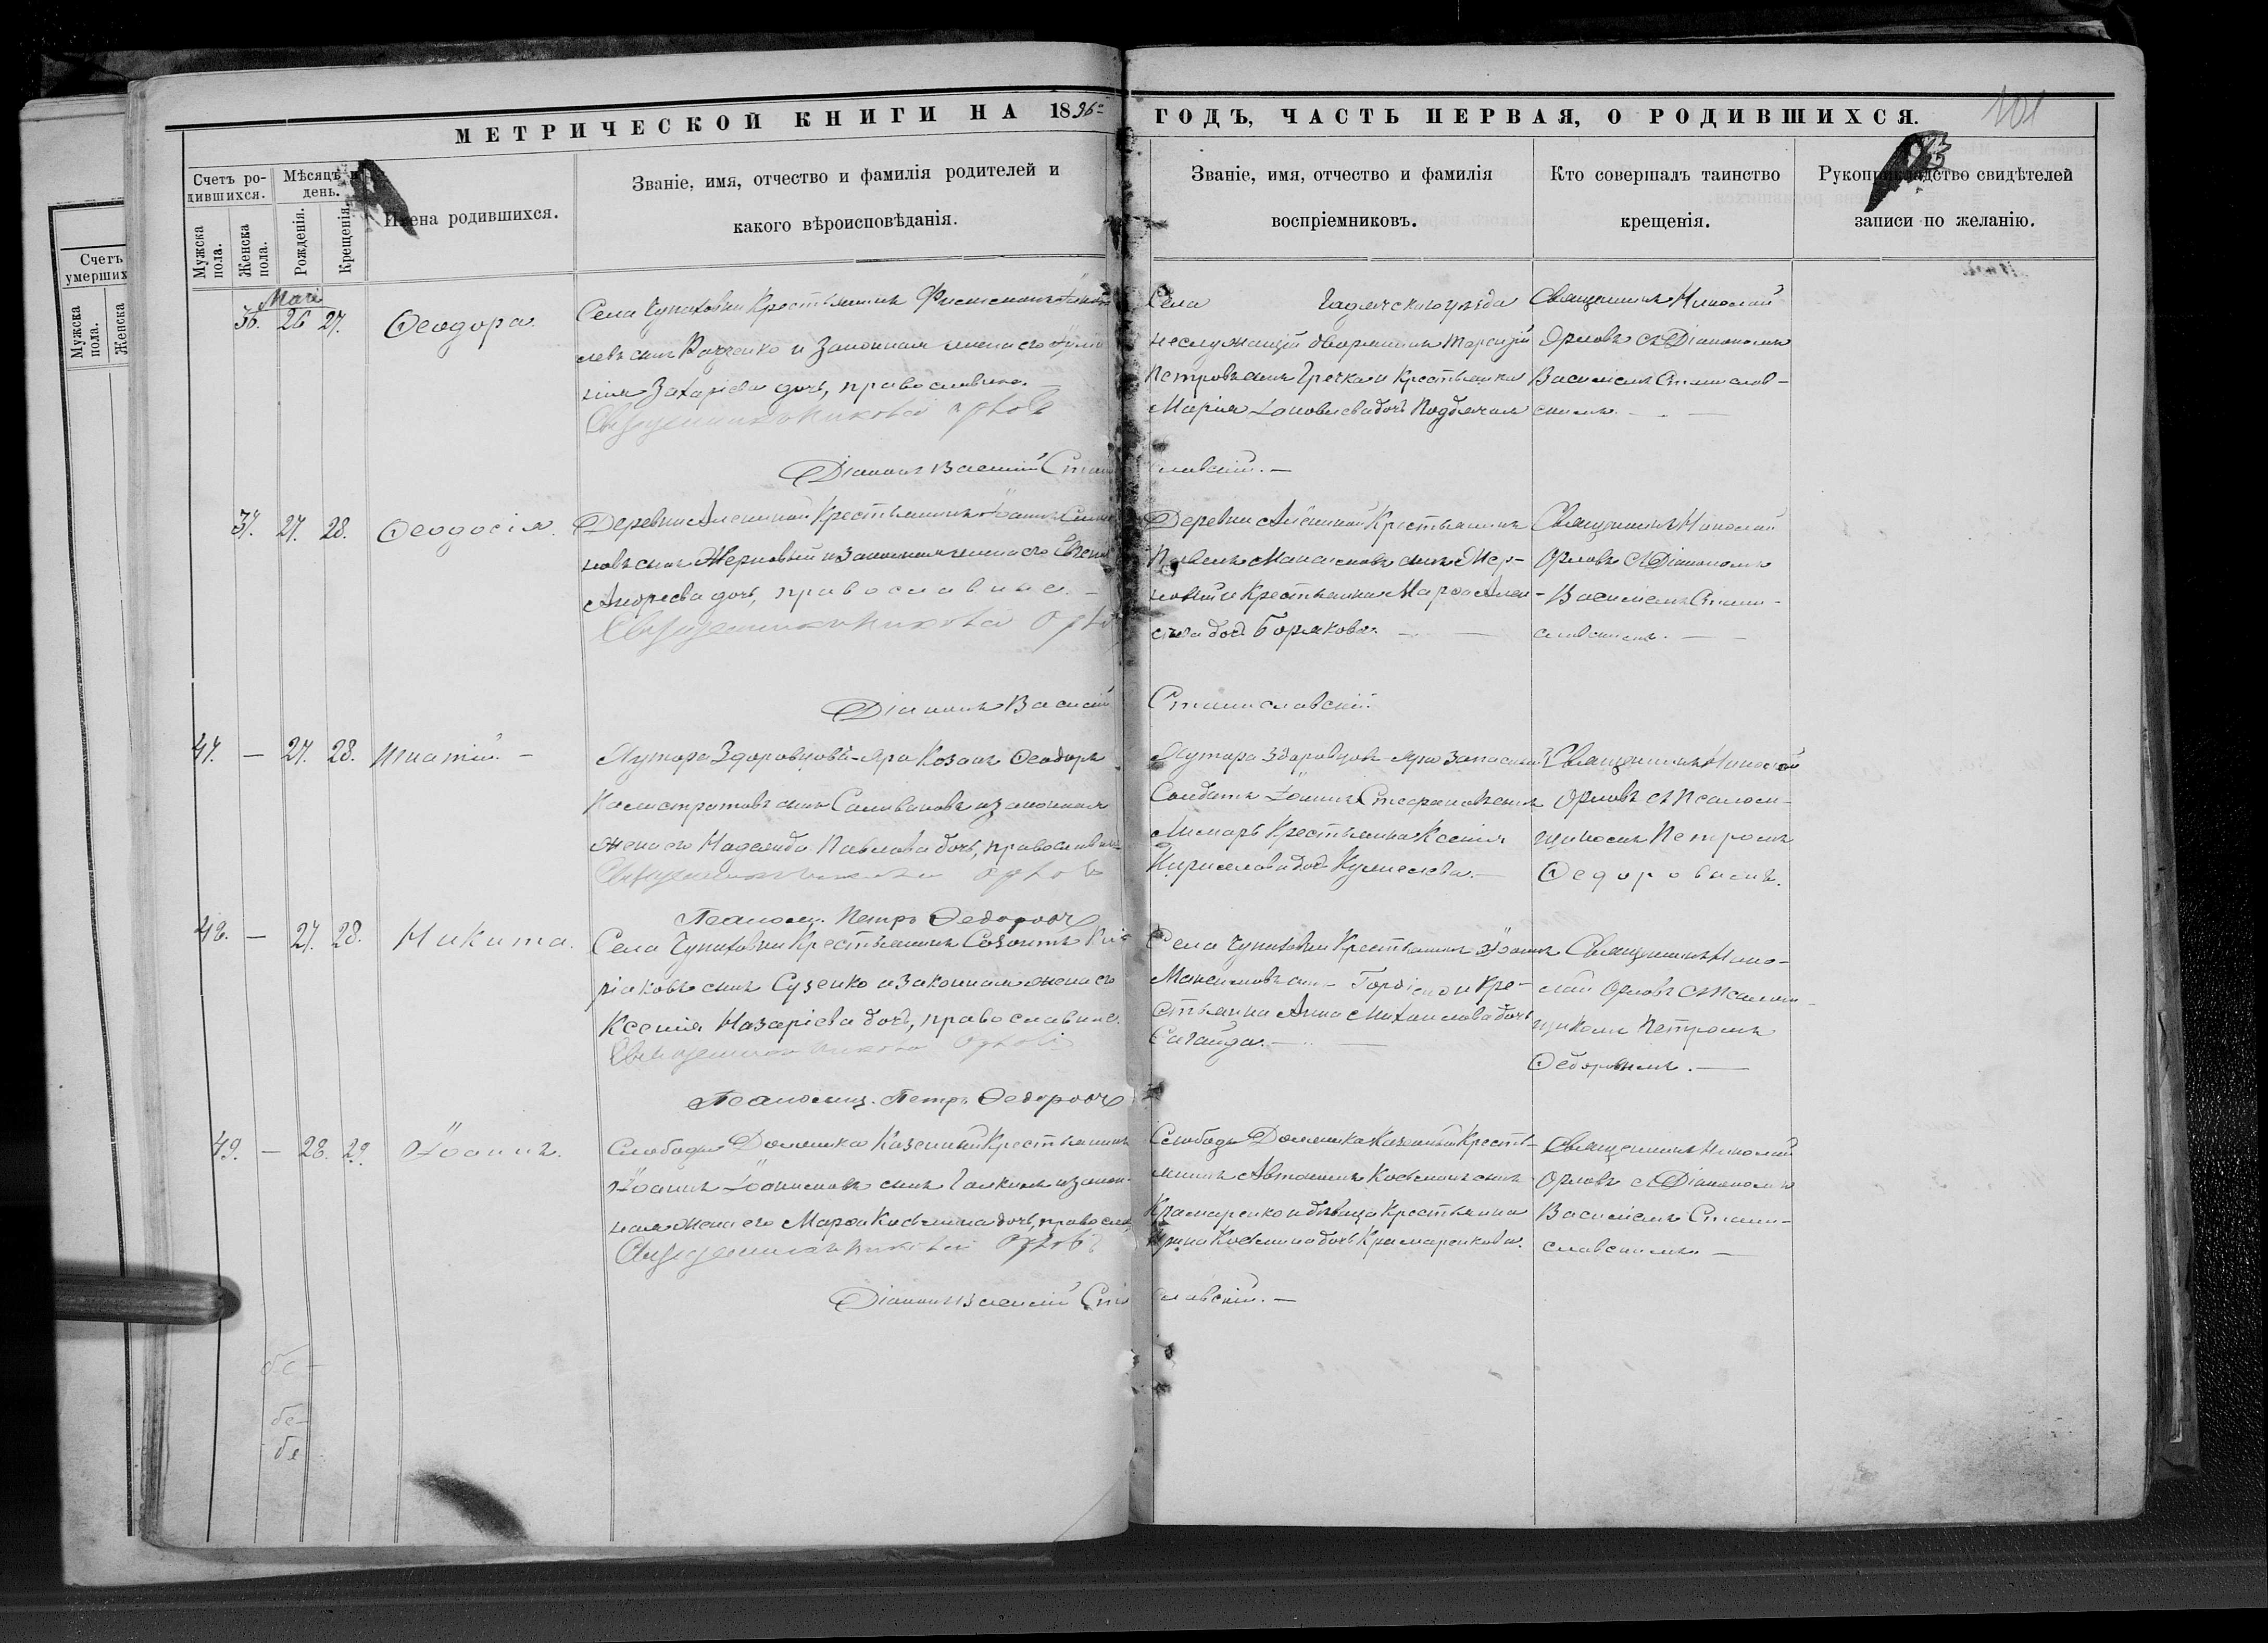 МЕТРИЧЕСКОЙ КНИГИ НА 1896 ГОДЪ, ЧАСТЬ ПЕРВАЯ, О РОДИВШИХСЯ.
101
Счетъ родившихся.
Мужска пола.
Женска пола.
Мѣсяцъ и день.
Рожденія.
Крещенія.
Имена родившихся.
Званіе, имя, отчество и фамилія родителей и
какого вѣроисповѣданія.
Званіе, имя, отчество и фамилія
воспріемниковъ.
Кто совершалъ таинство
крещенія.
Рукоприкладство свидѣтелей
записи по желанію.
Счетъ
умерших
Мужска пола.
Женска
36. 26 27. Ѳеодора.
Села Чупаховки Крестьянинъ
сынъ и законная жена его
Захаріева дочь, православные.
Священникъ Николай Орловъ
Діаконъ Василій Станиславскій. —
Села Гадячскаго уѣзда
неслужащій дворянинъ
Петровъ сынъ Гречка и крестьянка
Марія дочь
Священникъ Николай
Орловъ съ Діакономъ
Василіемъ Станислав-
скимъ. —
37. 27. 28. Ѳеодосія.
Деревни Крестьянинъ Іоаннъ
новъ сынъ Жерновый и законная жена его
Андреева дочь, православные. —
Священникъ Николай Орловъ
Діаконъ Василій Станиславскій
Деревни Крестьянинъ
Павелъ сынъ Жер-
новый и Крестьянка Марѳа Алек-
сѣева дочь Борякова. —
Священникъ Николай
Орловъ съ Діакономъ
Василіемъ Стани-
славскимъ. —
47. — 27. 28. Игнатій. —
Хутора Здоровцовъ-Яръ Козакъ Ѳеодоръ
Калистратовъ сынъ Селивановъ и законная
жена его Надежда Павлова дочь, православные
Священникъ Николай Орловъ
Псаломщ. Петръ Ѳедорович
Хутора Здоровцовъ Яръ запасный
Солдатъ Іоаннъ Стефановъ сынъ
Лимарь Крестьянка Ксенія
Кириллова дочь —
Священникъ Николай
Орловъ съ Псалом-
щикомъ Петромъ
Ѳедоровымъ.
48. — 27. 28. Никита.
Села Чупаховки Крестьянинъ Созонтъ Ки-
ріаковъ сынъ Сузенко и законная жена его
Ксенія Назаріева дочь, православные.
Священникъ Николай Орловъ
Псаломщ. Петръ Ѳедорович
Села Чупаховки Крестьянинъ Іоаннъ
Максимовъ сынъ Гордіенко и Кре-
стьянка Анна Михайлова дочь
Сагайда. —
Священникъ Нико-
лай Орловъ съ Псалом-
щикомъ Петромъ
Ѳедоровымъ. —
49. — 28. 29. Іоаннъ.
Слободы Должика Казенный Крестьянинъ
Іоаннъ сынъ Галкинъ и закон-
ная жена его Марѳа Косьмина дочь, православ.
Священникъ Николай Орловъ
Діаконъ Василій Станиславскій. —
Слободы Должика Казенный Кресть-
янинъ Автономъ Косьминъ сынъ
Крамаренко и дѣвица Крестьянка
Ирина Косьмина дочь Крамаренкова.
Священникъ Николай
Орловъ съ Діакономъ
Василіемъ Стани-
славскимъ. —